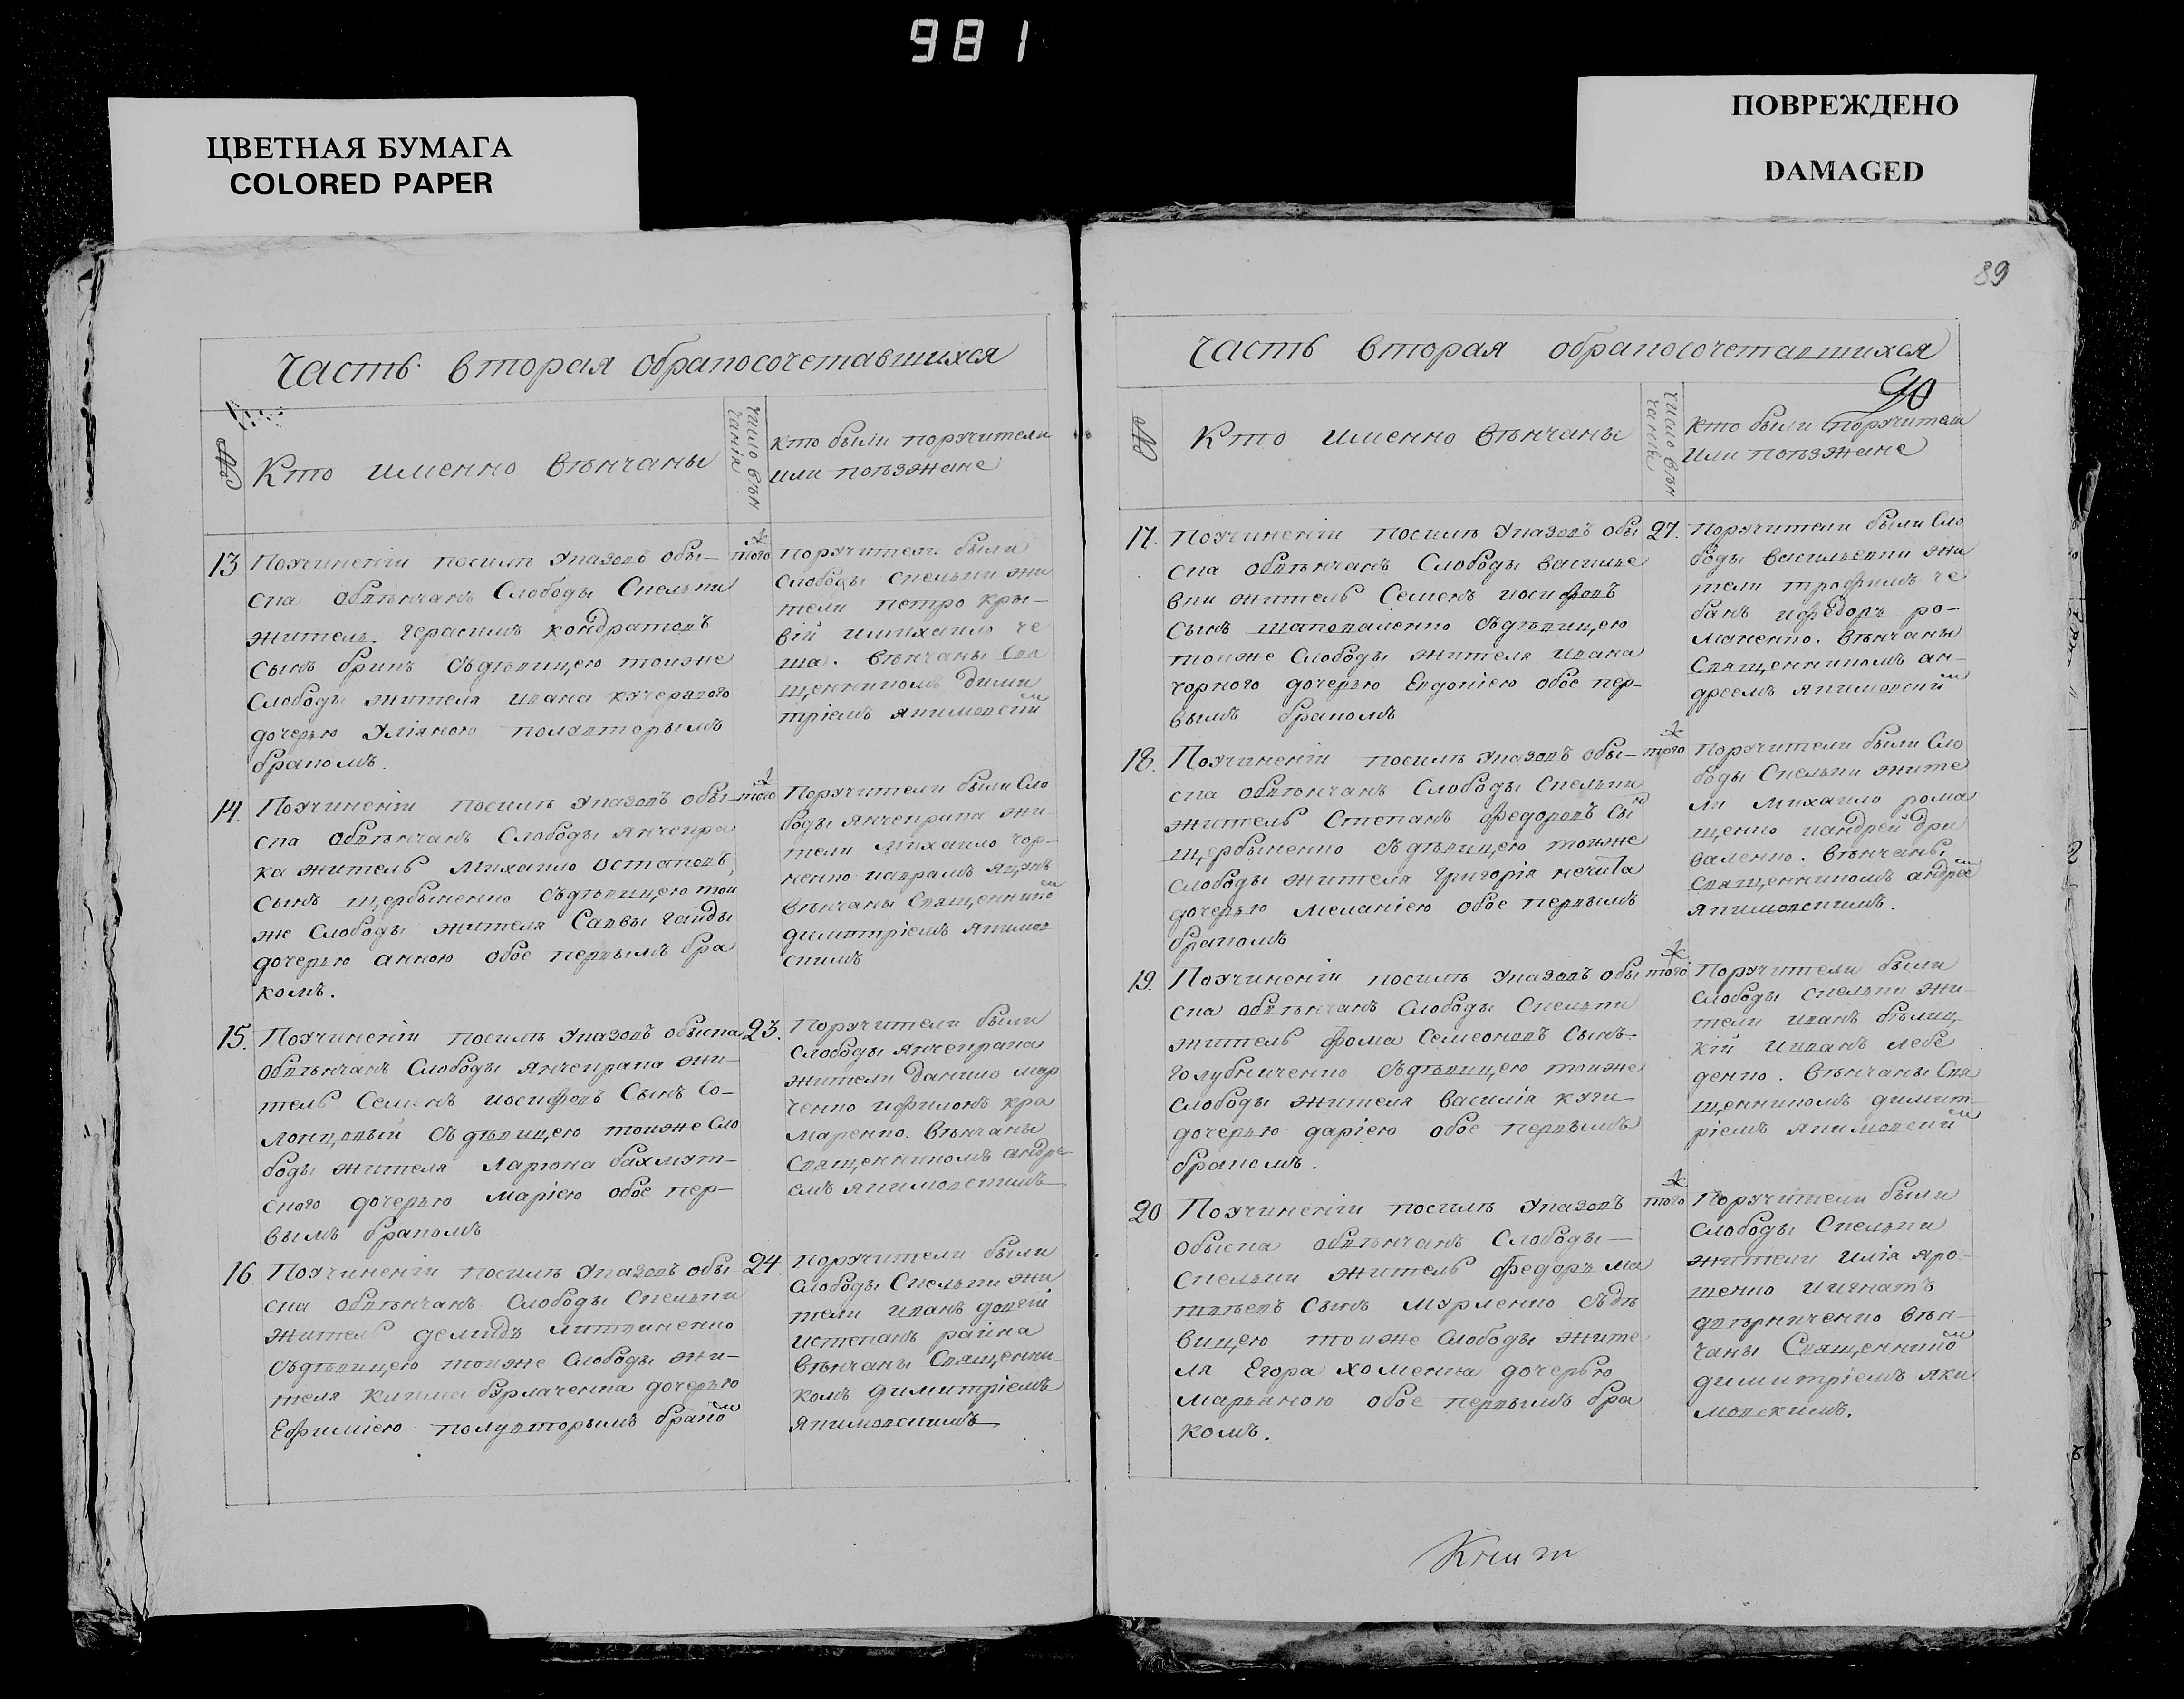 981
ЦВЕТНАЯ БУМАГА
COLORED PAPER
ПОВРЕЖДЕНО
DAMAGED
89
Часть вторая обракосочетавшихся
№
Кто именно вѣнчаны
число вѣн
чанія
кто были поручители
или поѣзжане
13 Поучиненіи посилѣ Указовъ обы-
ска обвѣнчанъ Слободы Спевки
житель Герасимъ кондратовъ
сынъ брикъ съдѣвицею тоиже
Слободы жителя Ивана кучерявого
дочерью Уліяною полувторымъ
бракомъ.
того ж
поручители были
слободы спевки жи
тели петро кры-
вій имихаило че
ша. вѣнчаны Свя
щенникомъ дими
тріемъ якимовскимъ
14. Поучиненіи посилѣ указовъ обы-
ска обвѣнчанъ Слободы Янченра
ка житель михаило остаповъ
сынъ щербыненко съдѣвицею той
же Слободы жителя Саввы гайды
дочерью анною обое первымъ бра
комъ.
того ж
Поручители были Сло
боды Янченрака жи
тели михаило чор-
ненко иаврамъ яценъ
вѣнчаны Священнико
димитріемъ якимов
скимъ
15. Поучиненіи посилѣ указовъ обыска
обвѣнчанъ Слободы Янченрака жи-
тель Семенъ иосифовъ Сынъ Со-
лонцевый съдѣвицею тоиже Сло
боды жителя Ларіона бахмут-
ского дочерью маріею обое пер-
вымъ бракомъ
23.
Поручители были
слободы Янченрака
жители данило мар
ченко ифилонъ кра
маренко. вѣнчаны
священникомъ андре-
емъ якимовскимъ
16. Поучиненіи посилѣ Указовъ обы
ска обвѣнчанъ Слободы Спевки
житель демидъ литвиненко
съдѣвицею тоиже Слободы жи-
теля клима бурлаченка дочерью
Ефиміею полувторымъ бракомъ
24.
поручители были
слободы Спевки жи
тели иванъ довгій
истепанъ райка
вѣнчаны Священни-
комъ димитріемъ
якимовскимъ
Часть вторая обракосочетавшихся
90
№
Кто именно вѣнчаны
число вѣн
чанія
кто были поручители
или поѣзжане
17. Поучиненіи посилѣ Указовъ обы
ска обвѣнчанъ Слободы василье
вки житель Семенъ иосифовъ
сынъ шаповаленко съдѣвицею
тоиже Слободы жителя ивана
чорного дочерью Евдокіею обое пер-
вымъ бракомъ
27.
поручители были Сло
боды васильевки жи
тели трофимъ че
банъ ифедоръ ро-
маненко. вѣнчаны
Священникомъ ан-
дреемъ якимовскимъ
18. Поучиненіи посилѣ указовъ обы-
ска обвѣнчанъ Слободы Спевки
житель Степанъ Федоровъ Сынъ
щербыненко съдѣвицею тоиже
слободы жителя григорія нечита
дочерью меланіею обое первымъ
бракомъ
того ж
поручители были Сло
боды Спевки жите
ли михаило рома
щенко иандрей дри
валенко. вѣнчаны
священникомъ андрее
якимовскимъ.
19. Поучиненіи посилѣ указовъ обы
ска обвѣнчанъ Слободы Спевки
житель фома Семеоновъ Сынъ
голубниченко съдѣвицею тоиже
слободы жителя василія куги
дочерью даріею обое первымъ
бракомъ.
того ж
Поручители были
слободы спевки жи-
тели иванъ бѣлиц
кій ииванъ лебе
денко. вѣнчаны Свя
щенникомъ димит-
ріемъ якимовскимъ
20 Поучиненіи посилѣ указовъ
обыска обвѣнчанъ Слободы-
спевки житель федоръ ма
твѣевъ сынъ мурленко съдѣ
вицею тоиже слободы жите
ля Егора хоменка дочерью
марьяною обое первымъ бра
комъ.
того ж
Поручители были
слободы Спевки
жители илія яро-
шенко иигнатъ
двѣрниченко вѣн-
чаны Священнико
димитріемъ яки
мовскимъ.